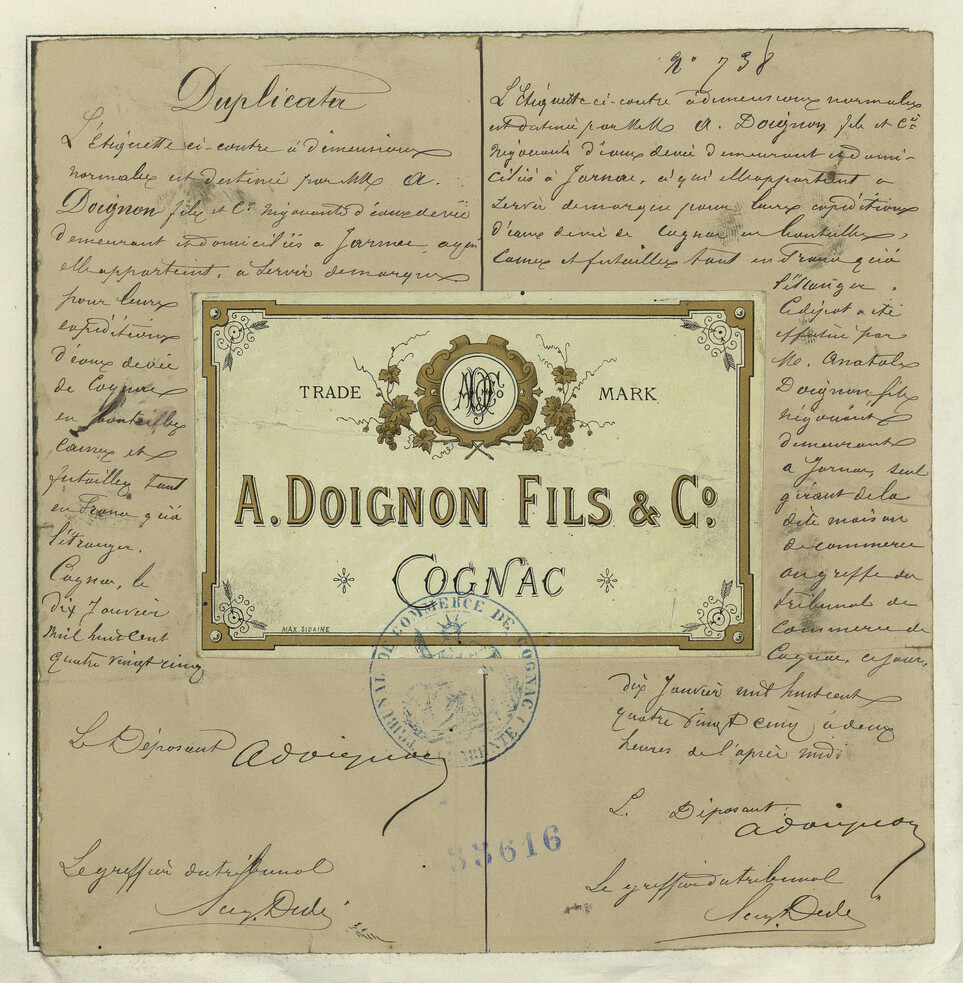 Duplicata
L'Etiquette ci-contre à dimensions
normales est destiné par MM A.
Doignon fils et Cie Négociants d'eaux de vie
demeurant et domiciliés à Jarnac, a qui
elle appartient, à servir de marque
pour leurs
expéditions
d'eaux de vie
de Cognac
en bouteilles
caisses et
futailles tant
en France qu'à
l'étranger.
Cognac, le
dix Janvier
mil huit cent
quatre vingt cinq
Le Déposant ADoignon
Le greffier du tribunal
No 738
L'Etiquette ci-contre à dimensions normales
est destiné par MM A. Doignon fils et Cie
Négociants d'eaux de vie demeurant et domi-
ciliés à Jarnac, à qui elle appartient a
servir de marque pour leurs expéditions
d'eaux de vie de Cognac en bouteilles,
caisses et futailles tant en France qu'à
l'étranger.
Ce dépot a été
effectué par
M. Anatole
Doignon fils
négociant
demeurant
a Jarnac, seul
gérant de la
dite maison
de commerce
au greffe du
tribunal de
commerce de
Cognac, ce jour,
dix Janvier mil huit cent
quatre vingt cinq à deux
heures de l'après midi
Le Déposant
ADoignon
Le greffier du tribunal
TRADE MARK
A. DOIGNON FILS & Co.
COGNAC
MAX SIDAINE
TRIBUNAL DE COMMERCE DE COGNAC (CHARENTE)
33616